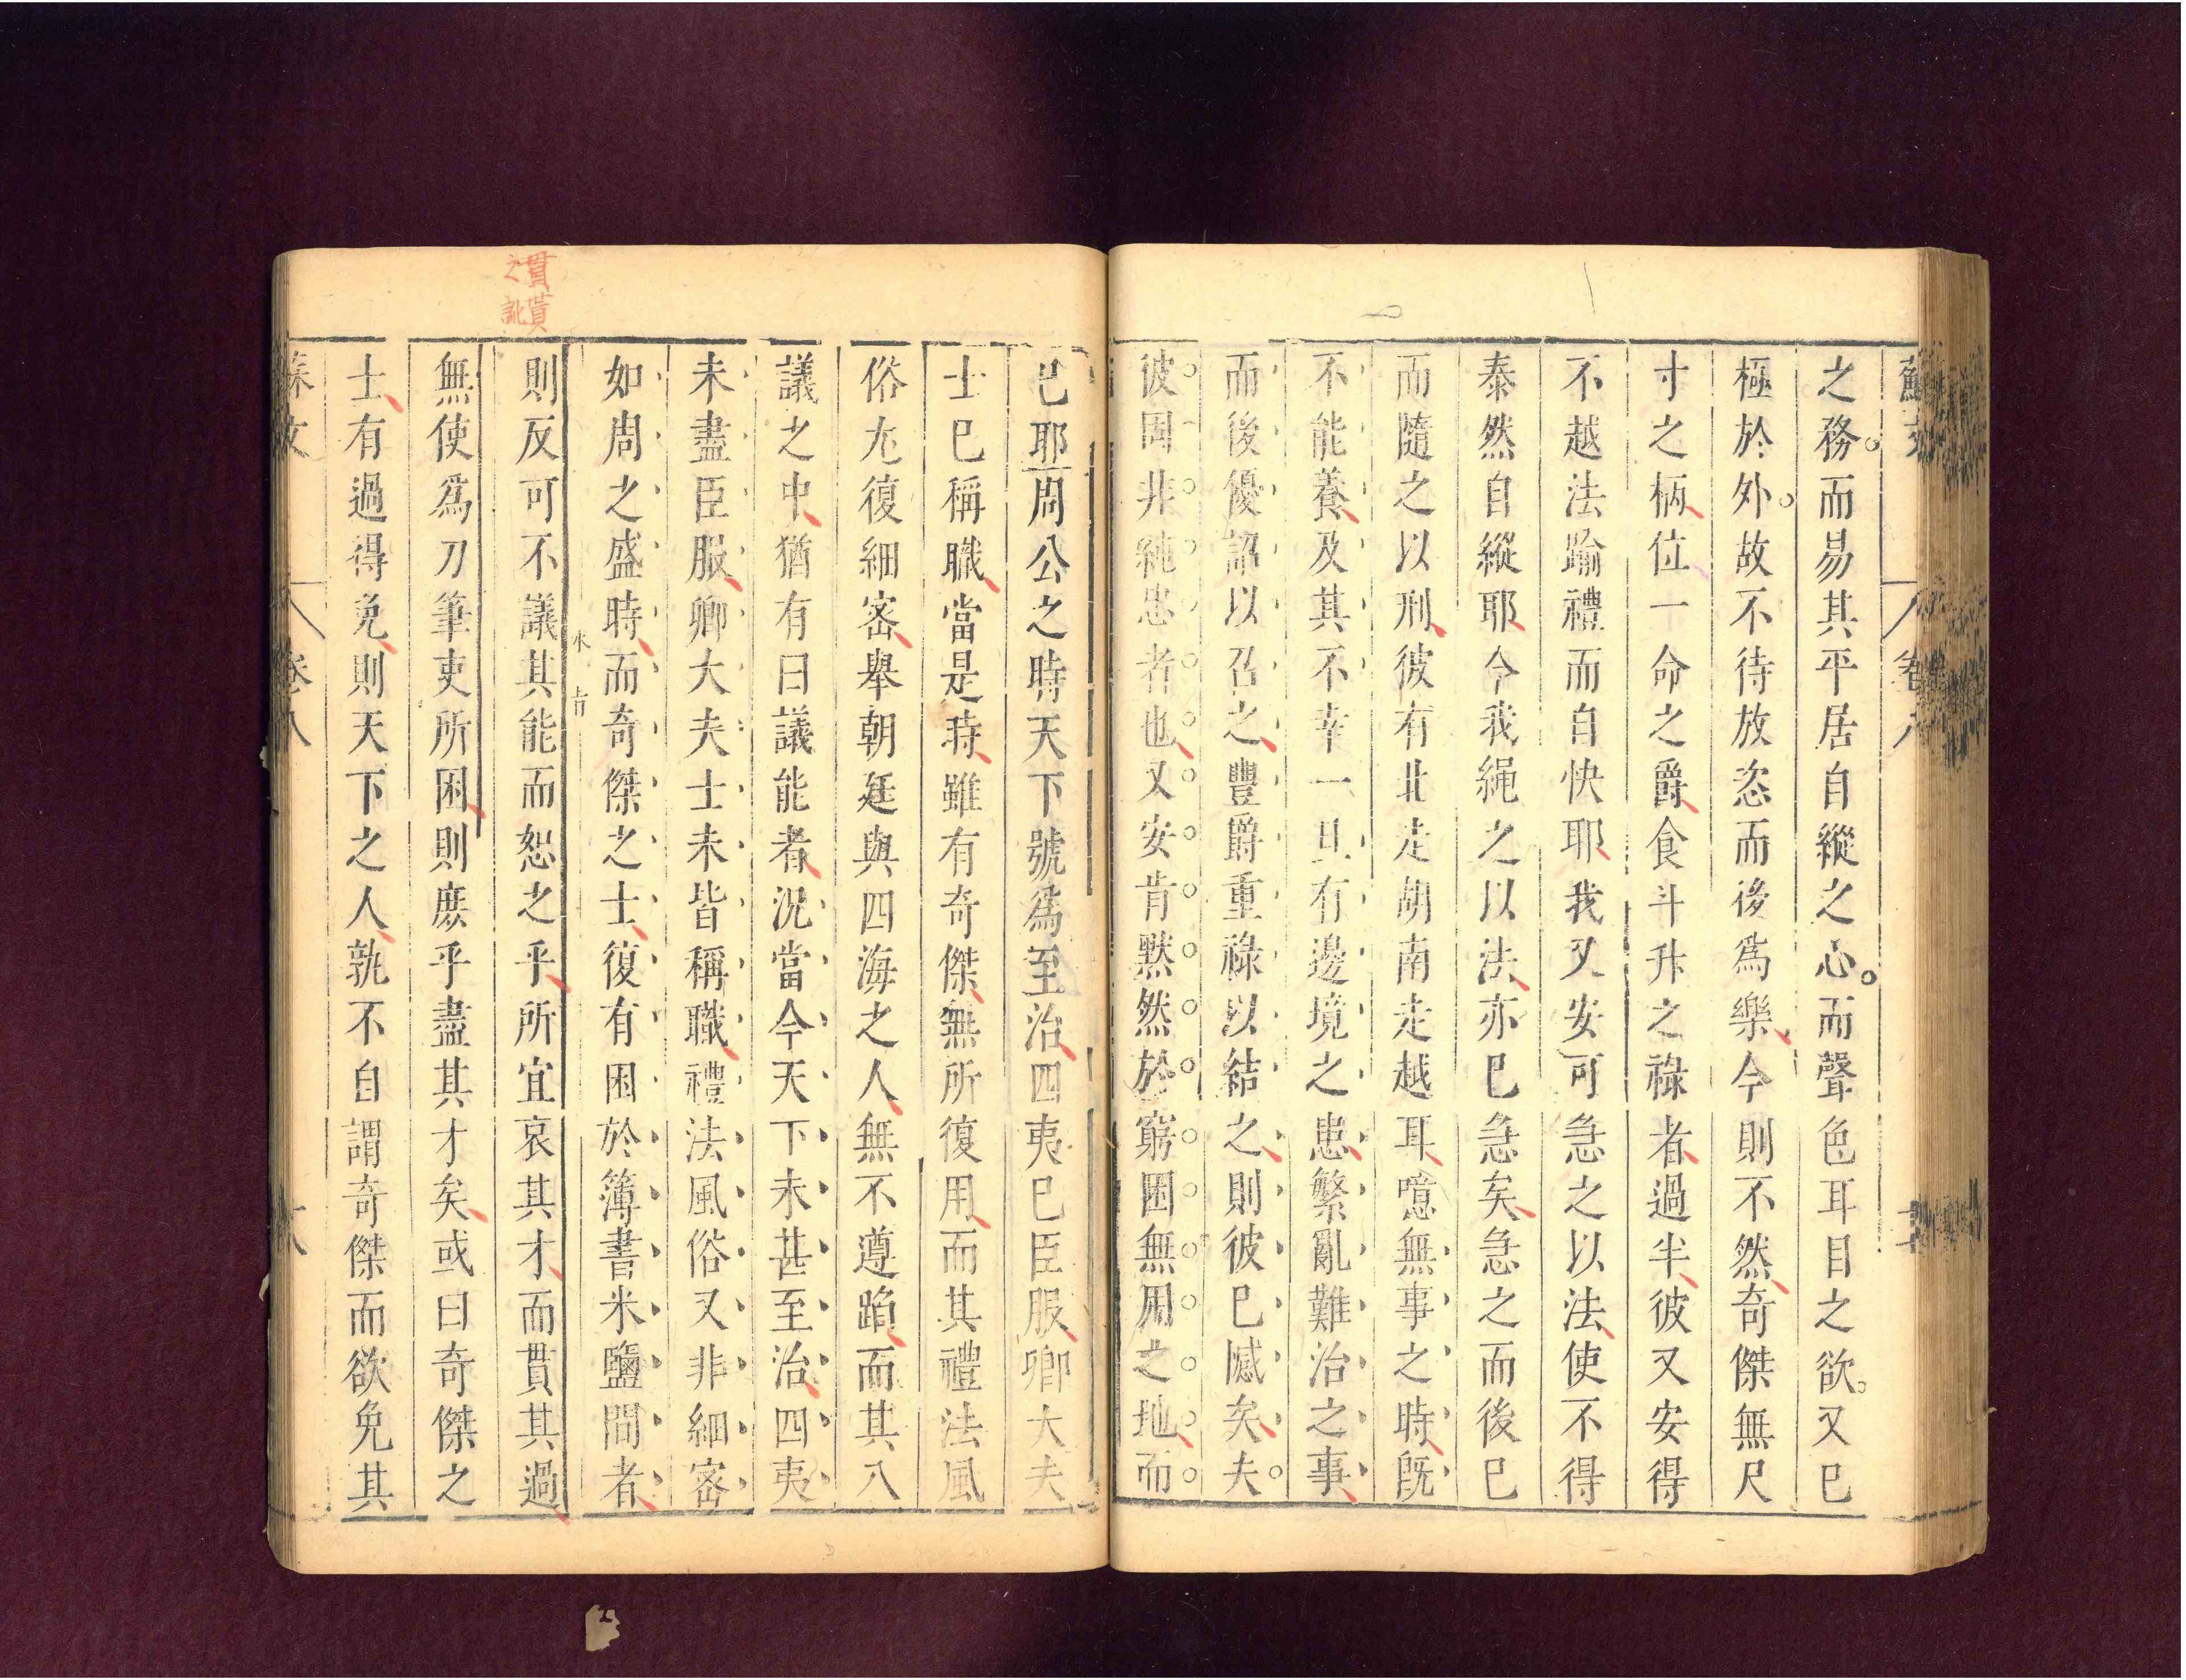 蘇文
卷八
之務而易其平居自縱之心而聲色耳目之欲又已
極於外故不待放恣而後爲樂今則不然奇傑無尺
寸之柄位一命之爵食斗升之祿者過半彼又安得
不越法踰禮而自快耶我又安可急之以法使不得
泰然自縱耶今我繩之以法亦已急矣急之而後已
而隨之以刑彼有北走胡南走越耳噫無事之時既
不能養及其不幸一旦有邊境之患繁亂難治之事
而後優詔以召之豐爵重祿以結之則彼已憾矣夫
彼固非純忠者也又安肯默然於窮困無用之地而
已耶周公之時天下號爲至治四夷已臣服卿大夫
士已稱職當是時雖有奇傑無所復用而其禮法風
俗尢復細宻舉朝廷與四海之人無不遵蹈而其八
議之中猶有曰議能者況當今天下未甚至治四夷
未盡臣服卿大夫士未皆稱職禮法風俗又非細宻
如周之盛時而奇傑之士復有困於簿書米鹽間者
則反可不議其能而恕之乎所宜哀其才而貫其過
無使爲刀筆吏所困則庶乎盡其才矣或曰奇傑之
士有過得免則天下之人孰不自謂奇傑而欲免其
蘇文
卷八
貫貰
之訛